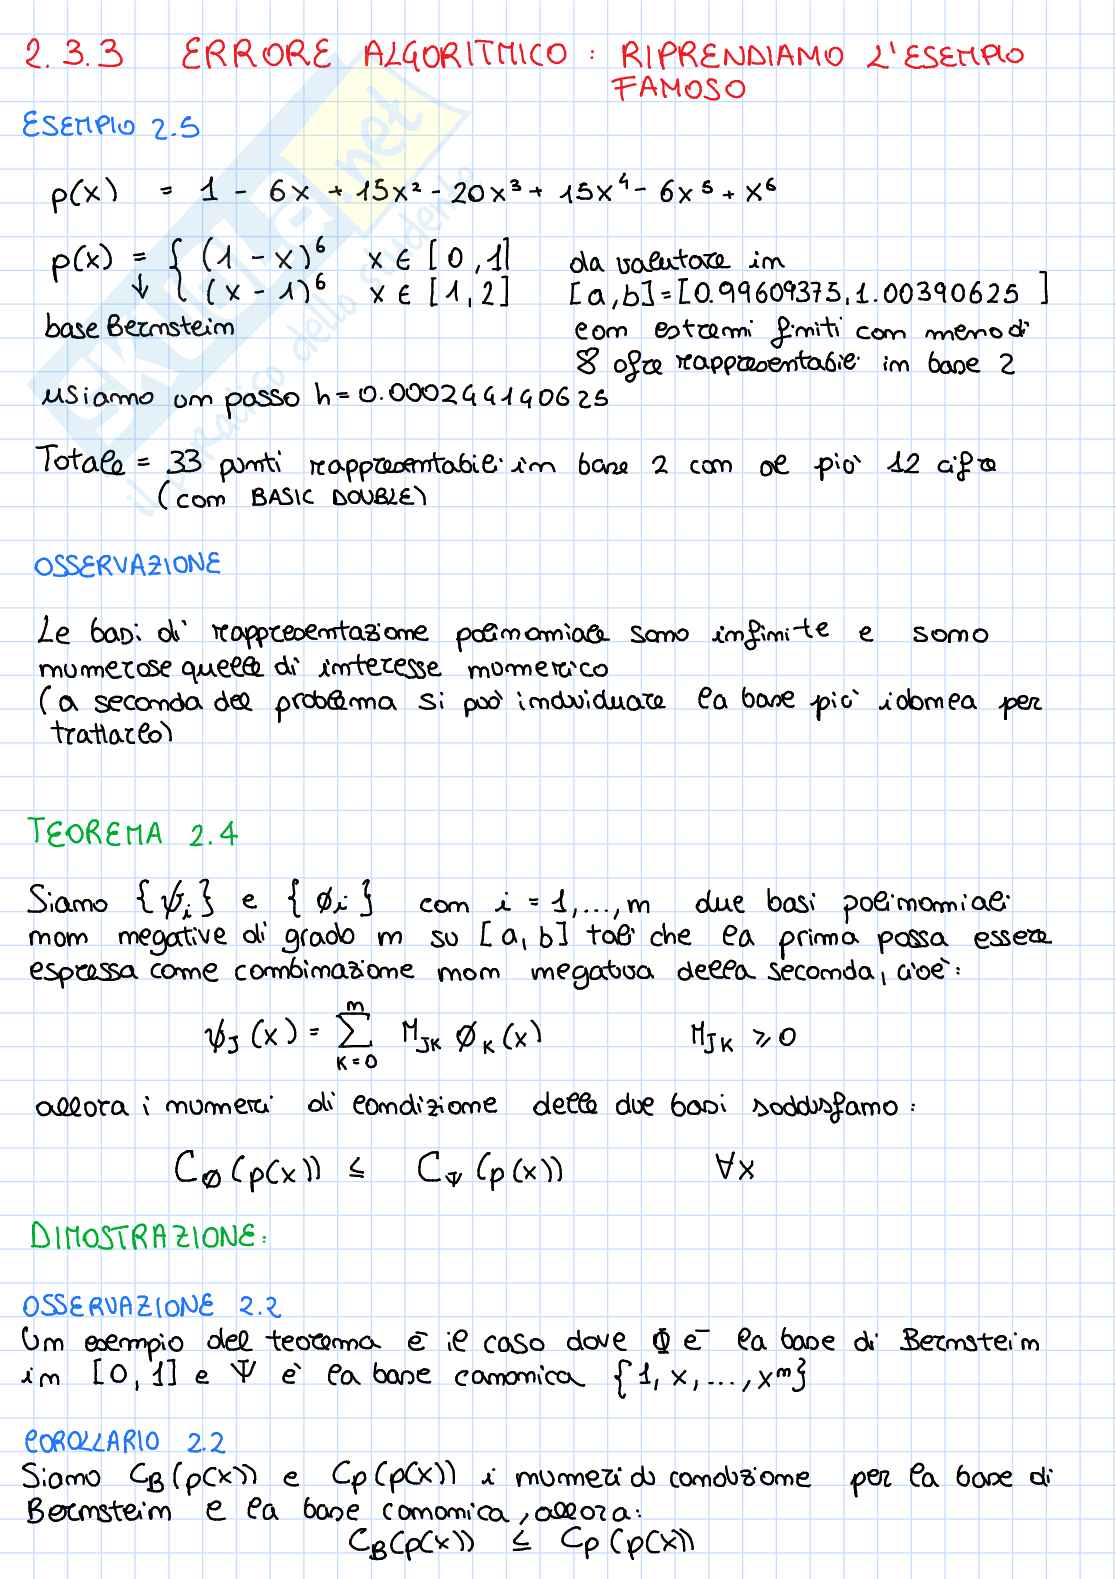 2.3.3 ERRORE ALGORITMICO : RIPRENDIAMO L'ESEMPIO
FAMOSO
ESEMPIO 2.5
p(x) = 1 - 6x + 15x² - 20x³ + 15x⁴ - 6x⁵ + x⁶
p(x) = { (1 - x)⁶ x ∈ [0,1] da valutare in
↓ (x - 1)⁶ x ∈ [1,2] [a,b]=[0.99609375,1.00390625]
base Bernstein con estremi finiti con meno di
8 cifre rappresentabili in base 2
usiamo un passo h=0.000244140625
Totale = 33 punti rappresentabili in base 2 con al più 12 cifre
(con BASIC DOUBLE)
OSSERVAZIONE
Le basi di rappresentazione polinomiale sono infinite e sono
numerose quelle di interesse numerico
(a seconda del problema si può individuare la base più idonea per
trattarlo)
TEOREMA 2.4
Siano {ψᵢ} e {øᵢ} con i = 1,...,n due basi polinomiali
non negative di grado n su [a,b] tali che la prima possa essere
espressa come combinazione non negativa della seconda, cioè:
ψ_J(x) = ∑_{K=0}^{n} M_{JK} ø_K(x) M_{JK} ⩾ 0
allora i numeri di condizione delle due basi soddisfano:
C_ø(p(x)) ≤ C_ψ(p(x)) ∀x
DIMOSTRAZIONE:
OSSERVAZIONE 2.2
Un esempio del teorema è il caso dove Φ è la base di Bernstein
in [0,1] e Ψ è la base canonica {1,x,...,xⁿ}
COROLLARIO 2.2
Siano C_B(p(x)) e C_P(p(x)) i numeri di condizione per la base di
Bernstein e la base canonica, allora:
C_B(p(x)) ≤ C_P(p(x))
SKUOLA.net
il paradiso dello studente